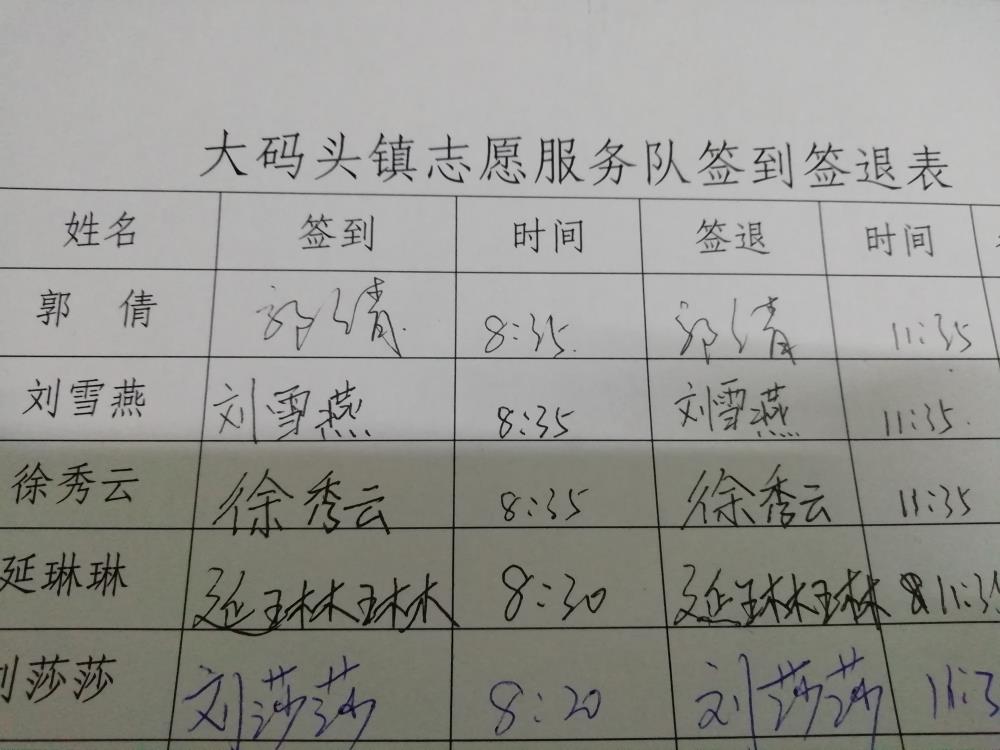 大码头镇志愿服务队签到签退表
姓名 签到 时间 签退 时间
郭 倩 郭倩 8:35 郭倩 11:35
刘雪燕 刘雪燕 8:35 刘雪燕 11:35
徐秀云 徐秀云 8:35 徐秀云 11:35
延琳琳 延琳琳 8:30 延琳琳 11:3
刘莎莎 刘莎莎 8:20 刘莎莎 11:3